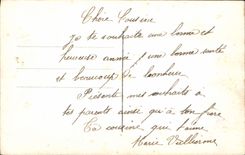 Chère Cousine
Je te souhaite une bonne et
heureuse année, d'une bonne santé
et beaucoup de bonheur
Présente mes souhaits à
tes parents ainsi qu'à ton frère
Ta cousine qui t'aime
Marie